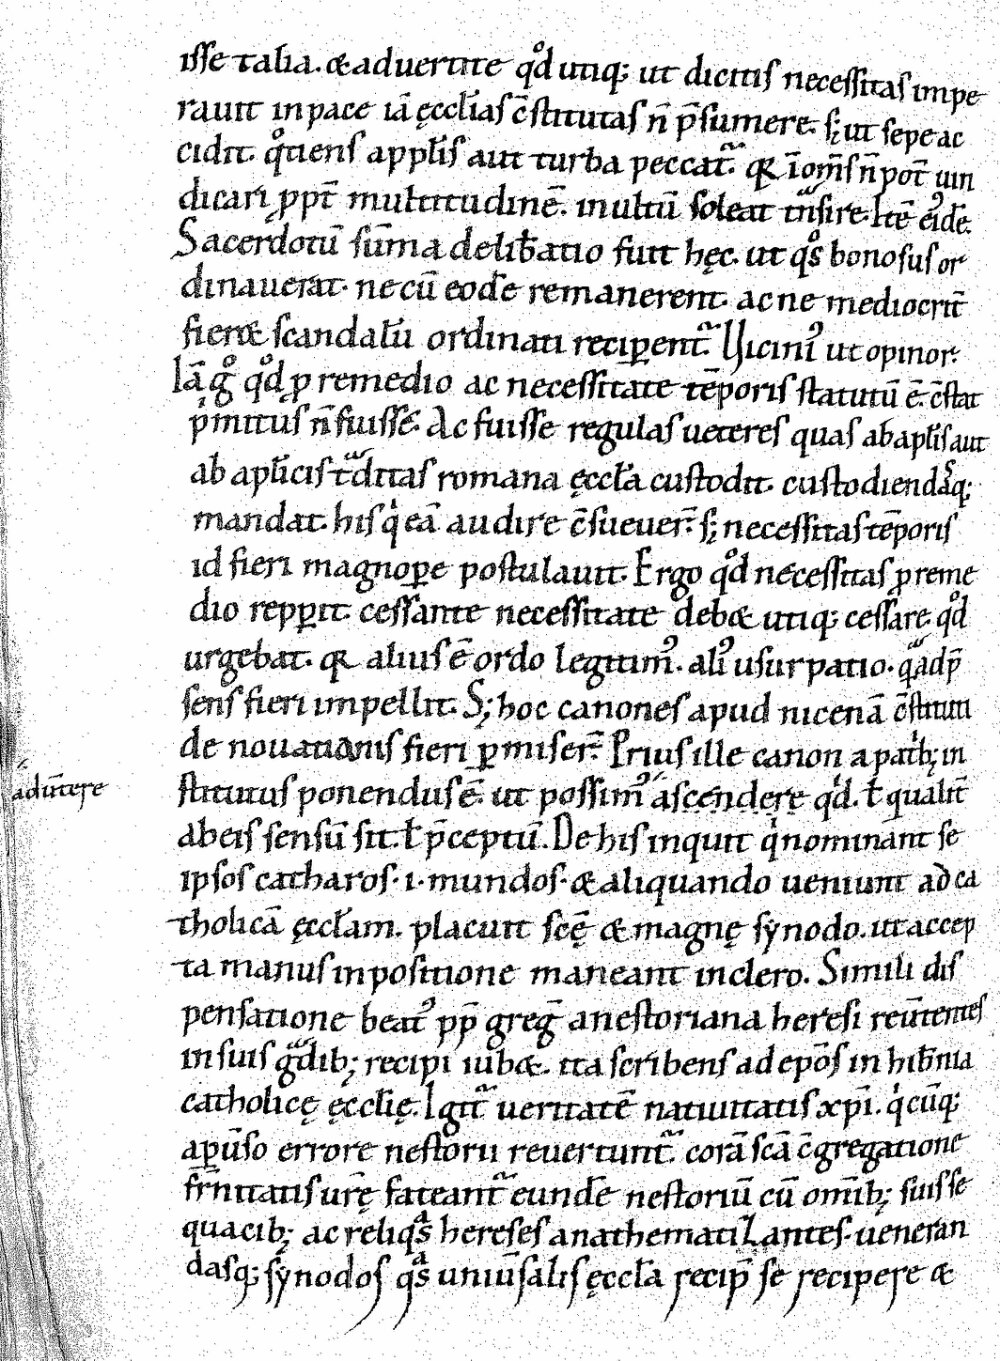 isse talia. & aduertite qd̊ utiq; ut dicitis necessitas impe
rauit in pace iā ęccl̄ias c̄stitutas n̄ p̄sumere. s; ut sepe ac
cidit. qͦtiens a ppl̄is aut turba peccat᷑. q̄a ī om̄s n̄ pot̄ uin
dicari ꝓpt̄ multitudinē. inultū soleat tͣnsire. Itē eid̄ē.
Sacerdotū sūma delib̄atio fuit hęc. ut qͦs bonosus or
dinauerat. ne cū eod̄e remanerent. ac ne mediocrit̄
fier& scandalū ordinati reciꝑent᷑. Vicin᷒ ut opinor.
Iā gͦ qd̊ ꝓ remedio ac necessitate tēporis statutū ē. c̄stat
p̄mitus n̄ fuisse. Ac fuisse regulas ueteres quas ab apl̄is aut
ab apl̄icis tͣditas romana ęccl̄a custodit. custodiendasq;
mandat. his qͥ eā audire c̄sueuer̄. s; necessitas tēporis
id fieri magnoꝑe postulauit. Ergo qd̊ necessitas ꝓ reme
dio reppꝑit. cessante necessitate deb& utiq; cessare. qd̊
urgebat. q̄a alius ē ordo legitim᷒. ali᷒ usurpatio. qͣ ad p̄
sens fieri impellit. S; hoc canones apud nicenā c̄stituti
de nouatianis fieri ꝑmiser̄. Prius ille canon a patͥb; in
stitutus ponendus ē. ut possim᷒ ascendere qͥd. ł qualit̄
ad uertere
ab eis sensū sit. ł p̄ceptū. De his inquit qͥ nominant se
ipsos catharos. i. mundos. & aliquando ueniunt ad ca
tholicā ęccl̄am. placuit scē & magnę synodo. ut accep
ta manus inpositione maneant in clero. Simili dis
pensatione beat᷒ pp̄ greg̅ a nestoriana heresi reūtentes
in suis gͣdib; recipi iub&. ita scribens ad epōs in hib̄nia
catholicę ęccl̄ię. Igit᷑ ueritatē natiuitatis xp̄i. qͥcūq;
a ꝑūso errore nestorii reuertunt᷑. corā scā c̄gregatione
fr̄nitatis ur̄ę fateant᷑ eund̄e nestoriū cū om̄ib; suis se
quacib; ac reliqͣs hereses anathematizantes. ueneran
dasq; synodos qͣs uniūsalis ęccl̄a recip̄ se recipere &